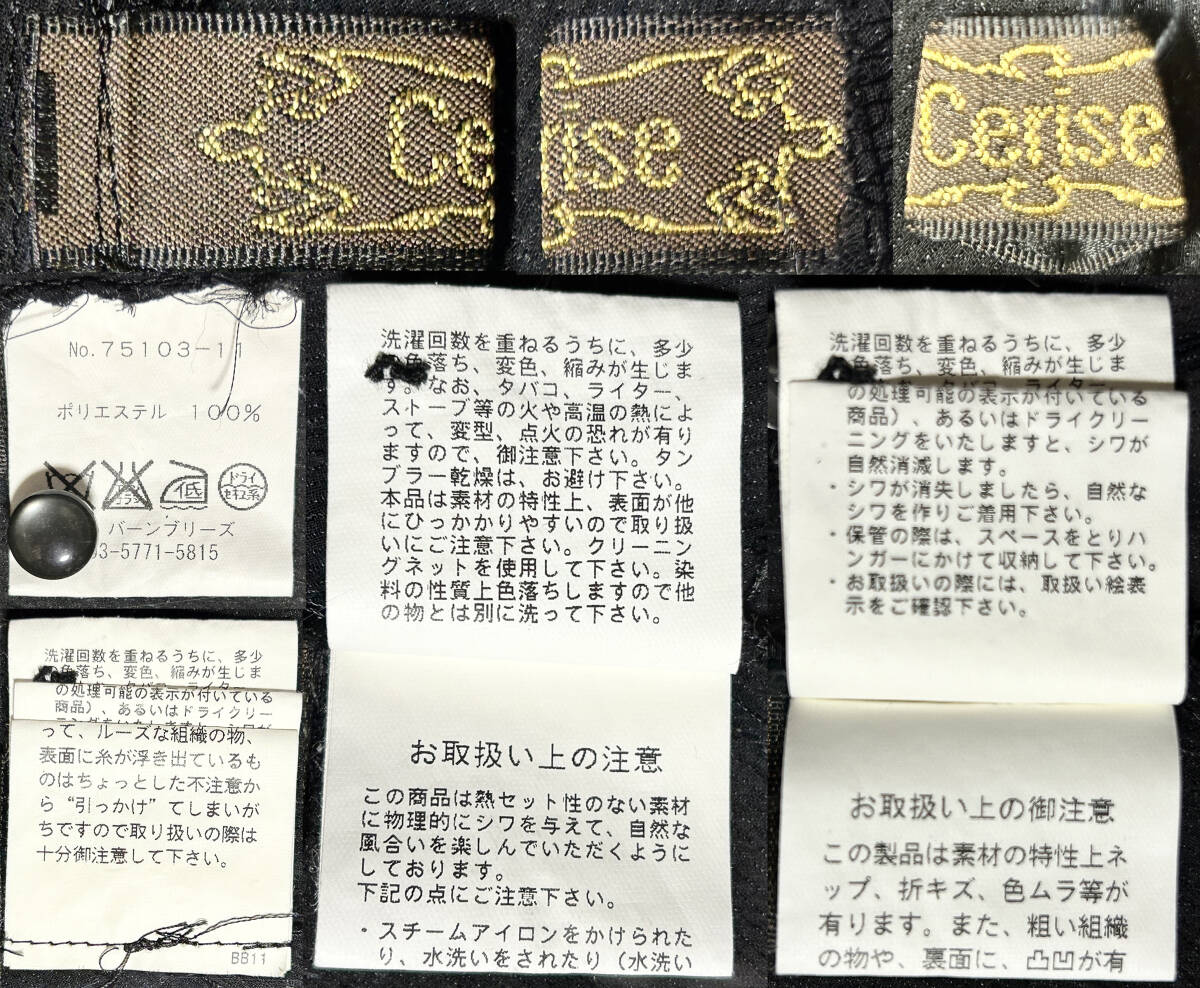 Ce
rise
Cerise
No.75103-11
ポリエステル 100%
低
ドライ
セキユ系
バーンブリーズ
03-5771-5815
洗濯回数を重ねるうちに、多少
色落ち、変色、縮みが生じま
す。なお、タバコ、ライター、
ストーブ等の火や高温の熱によ
って、変型、点火の恐れが有り
ますので、御注意下さい。タン
ブラー乾燥は、お避け下さい。
本品は素材の特性上、表面が他
にひっかかりやすいので取り扱
いにご注意下さい。クリーニン
グネットを使用して下さい。染
料の性質上色落ちしますので他
の物とは別に洗って下さい。
お取扱い上の注意
この商品は熱セット性のない素材
に物理的にシワを与えて、自然な
風合いを楽しんでいただくように
しております。
下記の点にご注意下さい。
・スチームアイロンをかけられた
り、水洗いをされたり（水洗い
洗濯回数を重ねるうちに、多少
色落ち、変色、縮みが生じま
の処理可能の表示が付いている
商品）、あるいはドライクリー
ニングをいたしますと、シワが
自然消滅します。
・シワが消失しましたら、自然な
シワを作りご着用下さい。
・保管の際は、スペースをとりハ
ンガーにかけて収納して下さい。
・お取扱いの際には、取扱い絵表
示をご確認下さい。
お取扱い上の御注意
この製品は素材の特性上ネ
ップ、折キズ、色ムラ等が
有ります。また、粗い組織
の物や、裏面に、凸凹が有
洗濯回数を重ねるうちに、多少
色落ち、変色、縮みが生じま
の処理可能の表示が付いている
商品）、あるいはドライクリー
って、ルーズな組織の物、
表面に糸が浮き出ているも
のはちょっとした不注意か
ら“引っかけ”てしまいが
ちですので取り扱いの際は
十分御注意して下さい。
BB11